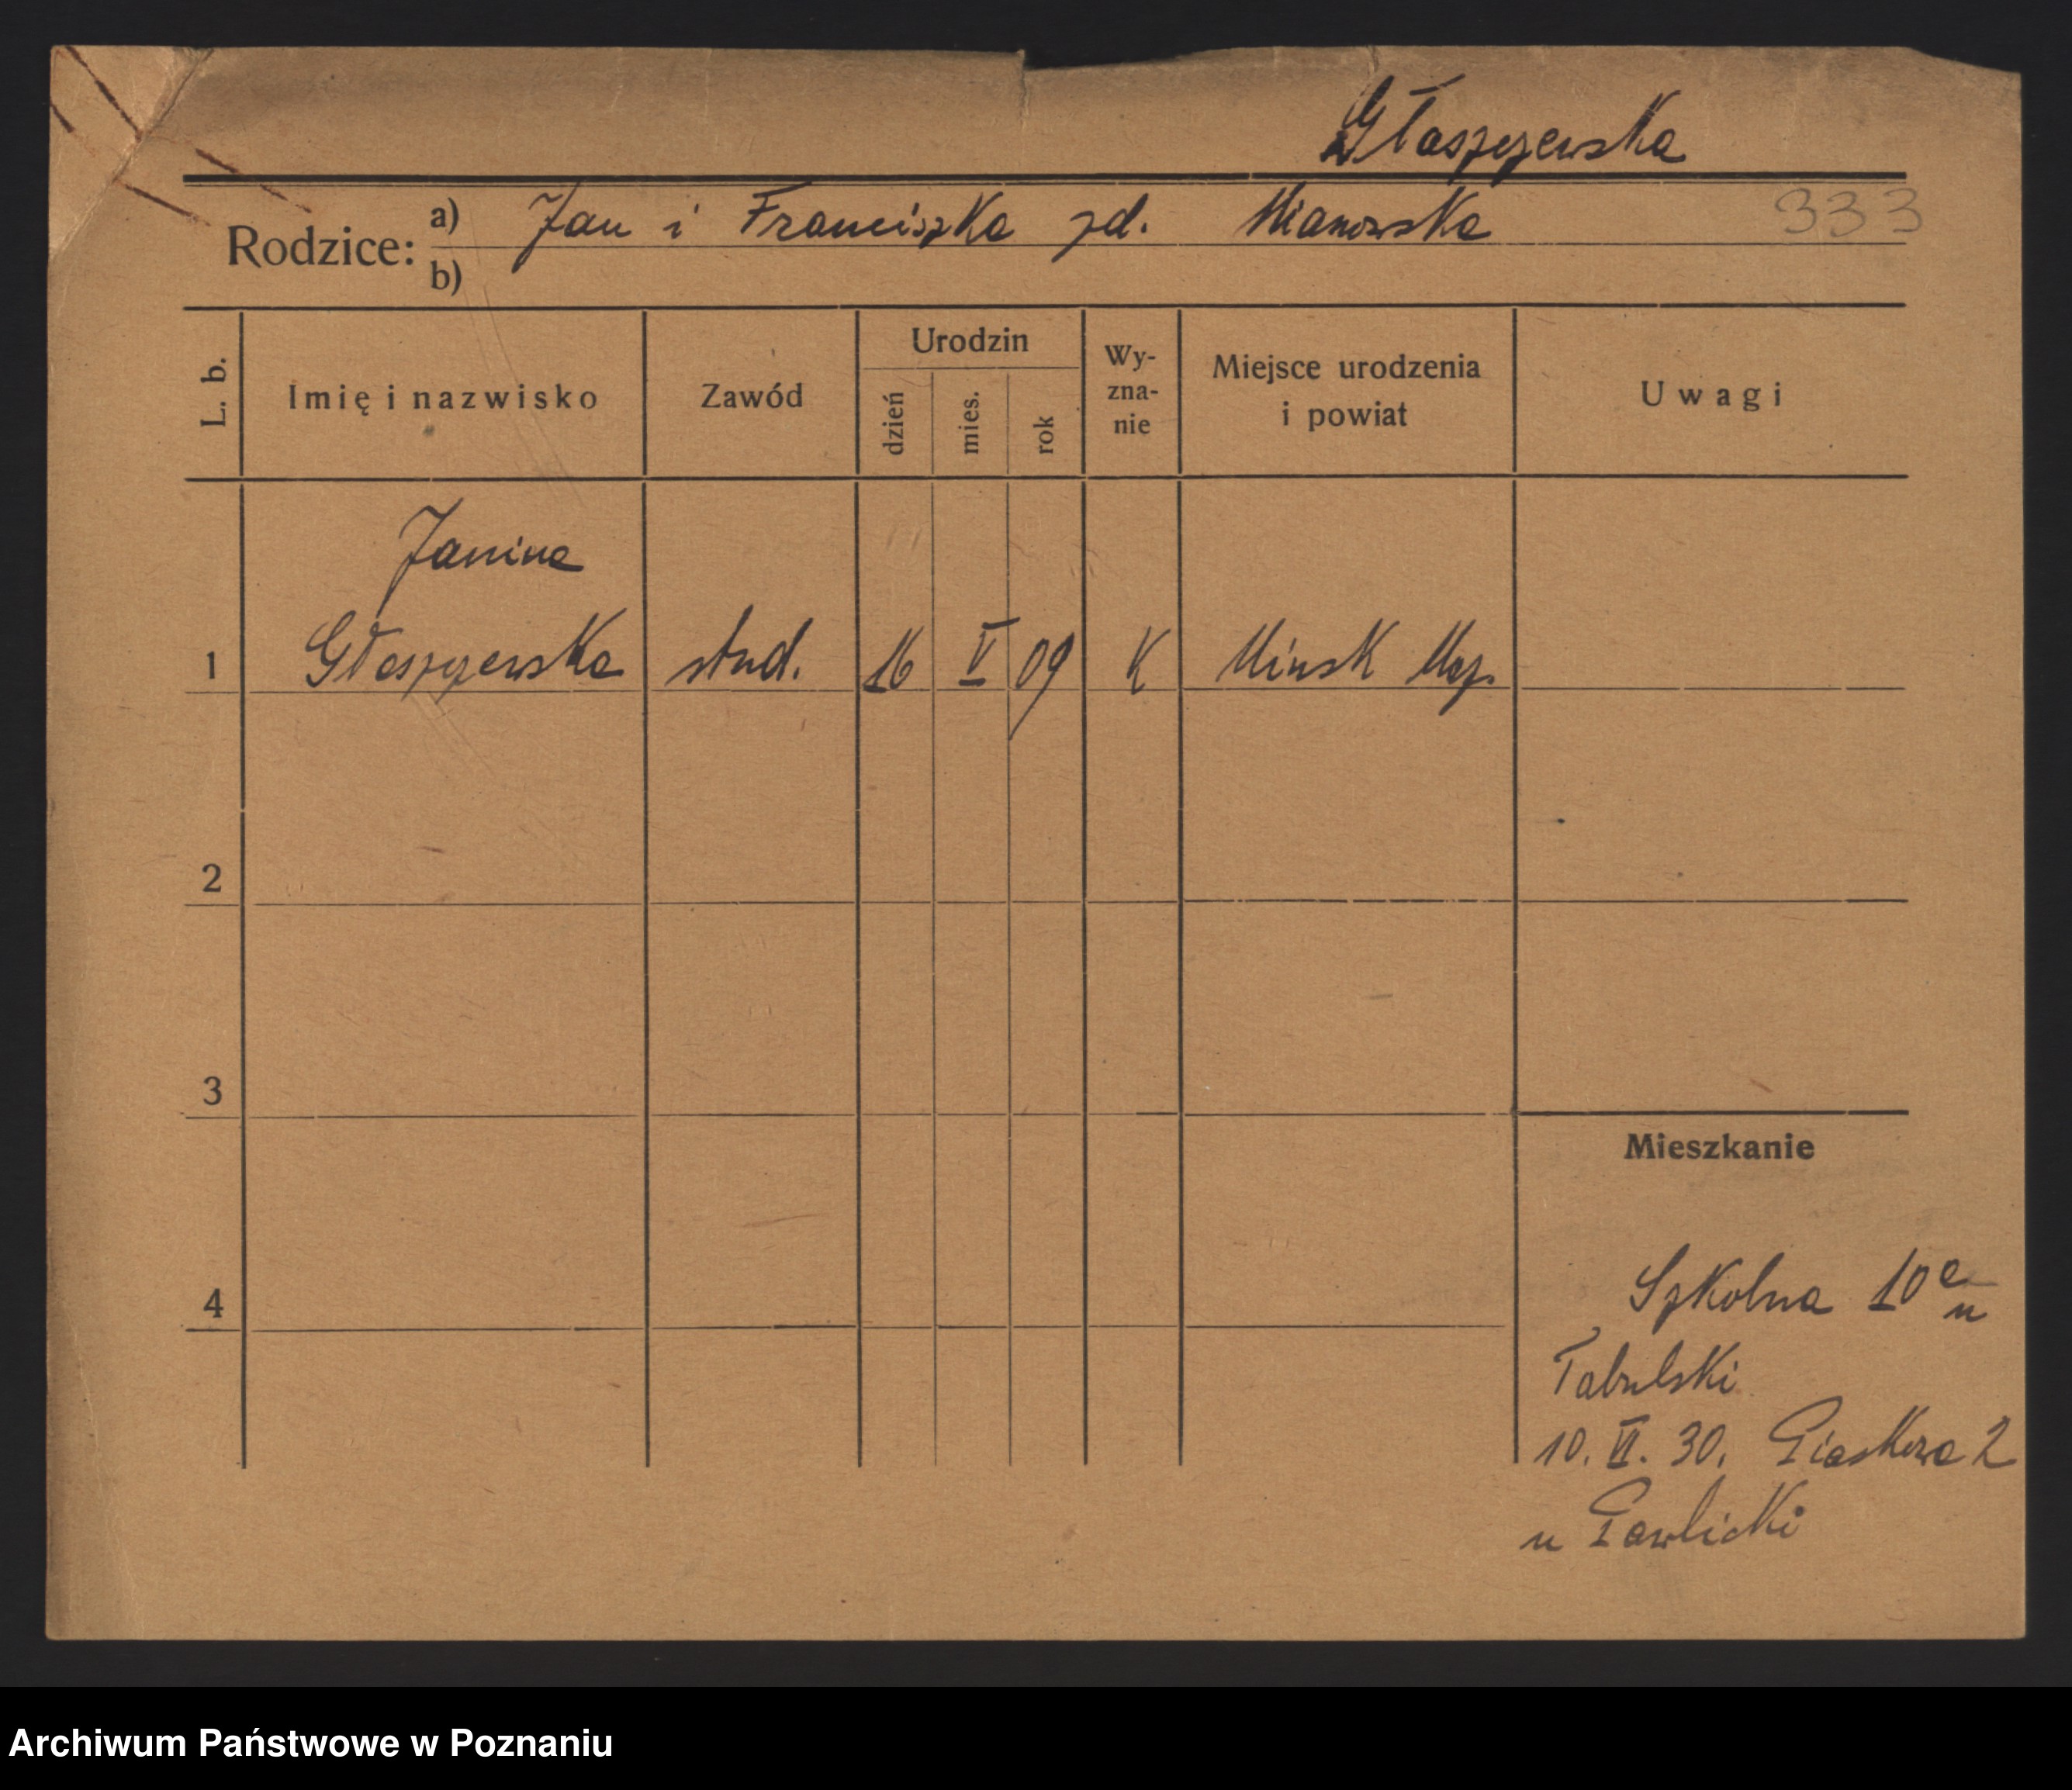 Głaszczewska
Rodzice: a) Jan i Franciszka zd. Mianowska 333
b)
L. b. Imię i nazwisko Zawód Urodzin dzień mies. rok Wy-zna-nie Miejsce urodzenia i powiat Uwagi
Janina
1 Głaszczewska stud. 16 V 09 K Mińsk Maz.
2
3
Mieszkanie
Szkolna 10a u
4
Tabulski
10. VI. 30. Piaskowa 2
u Pawlicki
Archiwum Państwowe w Poznaniu